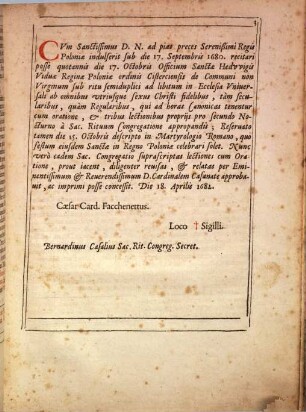 CVm Sanctissimus D. N. ad pias preces Serenissimi Regis
Poloniæ indulserit sub die 17. Septembris 1680. recitari
posse quotannis die 17. Octobris Officium Sanctæ Hedvvigis
Viduæ Reginæ Poloniæ ordinis Cisterciensis de Communi non
Virginum sub ritu semiduplici ad libitum in Ecclesia Vniuer-
sali ab omnibus vtriusque sexus Christi fidelibus, tàm sæcu-
laribus, quàm Regularibus, qui ad horas Canonicas tenentur
cum oratione, & tribus lectionibus proprijs pro secundo No-
cturno à Sac. Rituum Congregatione approbandis; Reseruato
tamen die 15. Octobris descripto in Martyrologio Romano, quo
festum eiusdem Sanctæ in Regno Poloniæ celebrari solet. Nunc
verò eadem Sac. Congregatio suprascriptas lectiones cum Ora-
tione, prout iacent, diligenter reuisas, & relatas per Emi-
nentissimum & Reuerendissimum D. Cardinalem Casanate approba-
uit, ac imprimi posse concessit. Die 18. Aprilis 1682.
Cæsar Card. Facchenettus.
Loco † Sigilli.
Bernardinus Casalius Sac. Rit. Congreg. Secret.